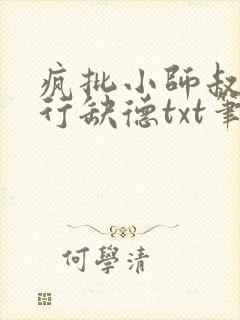 疯批小師叔
行缺德txt筆
何學清